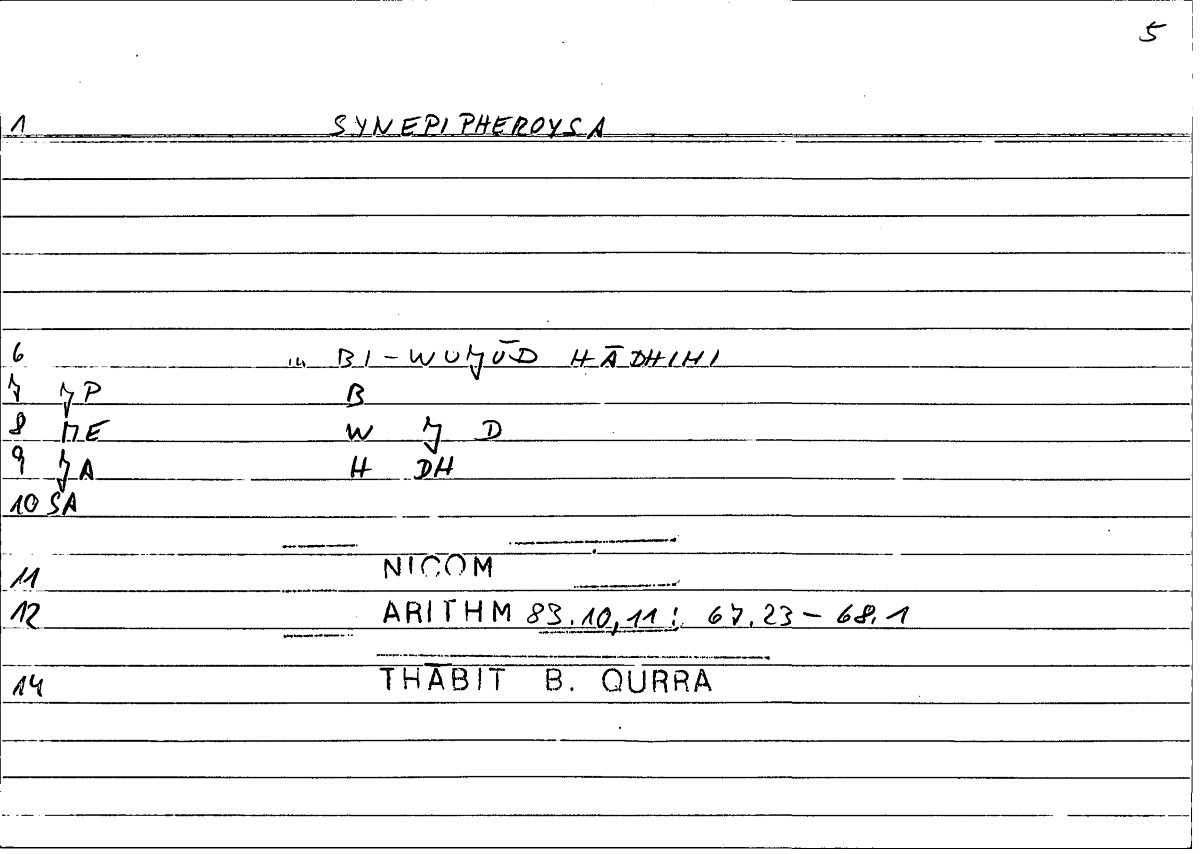 5
1 SYNEPIPHEROYSA
6 in BI-WUJŪD HĀDHIHI
7 JP B
8 W J D
9 JA H DH
10 SA
11 NICOM
12 ARITHM 83.10,11: 67.23-68.1
14 THĀBIT B. QURRA